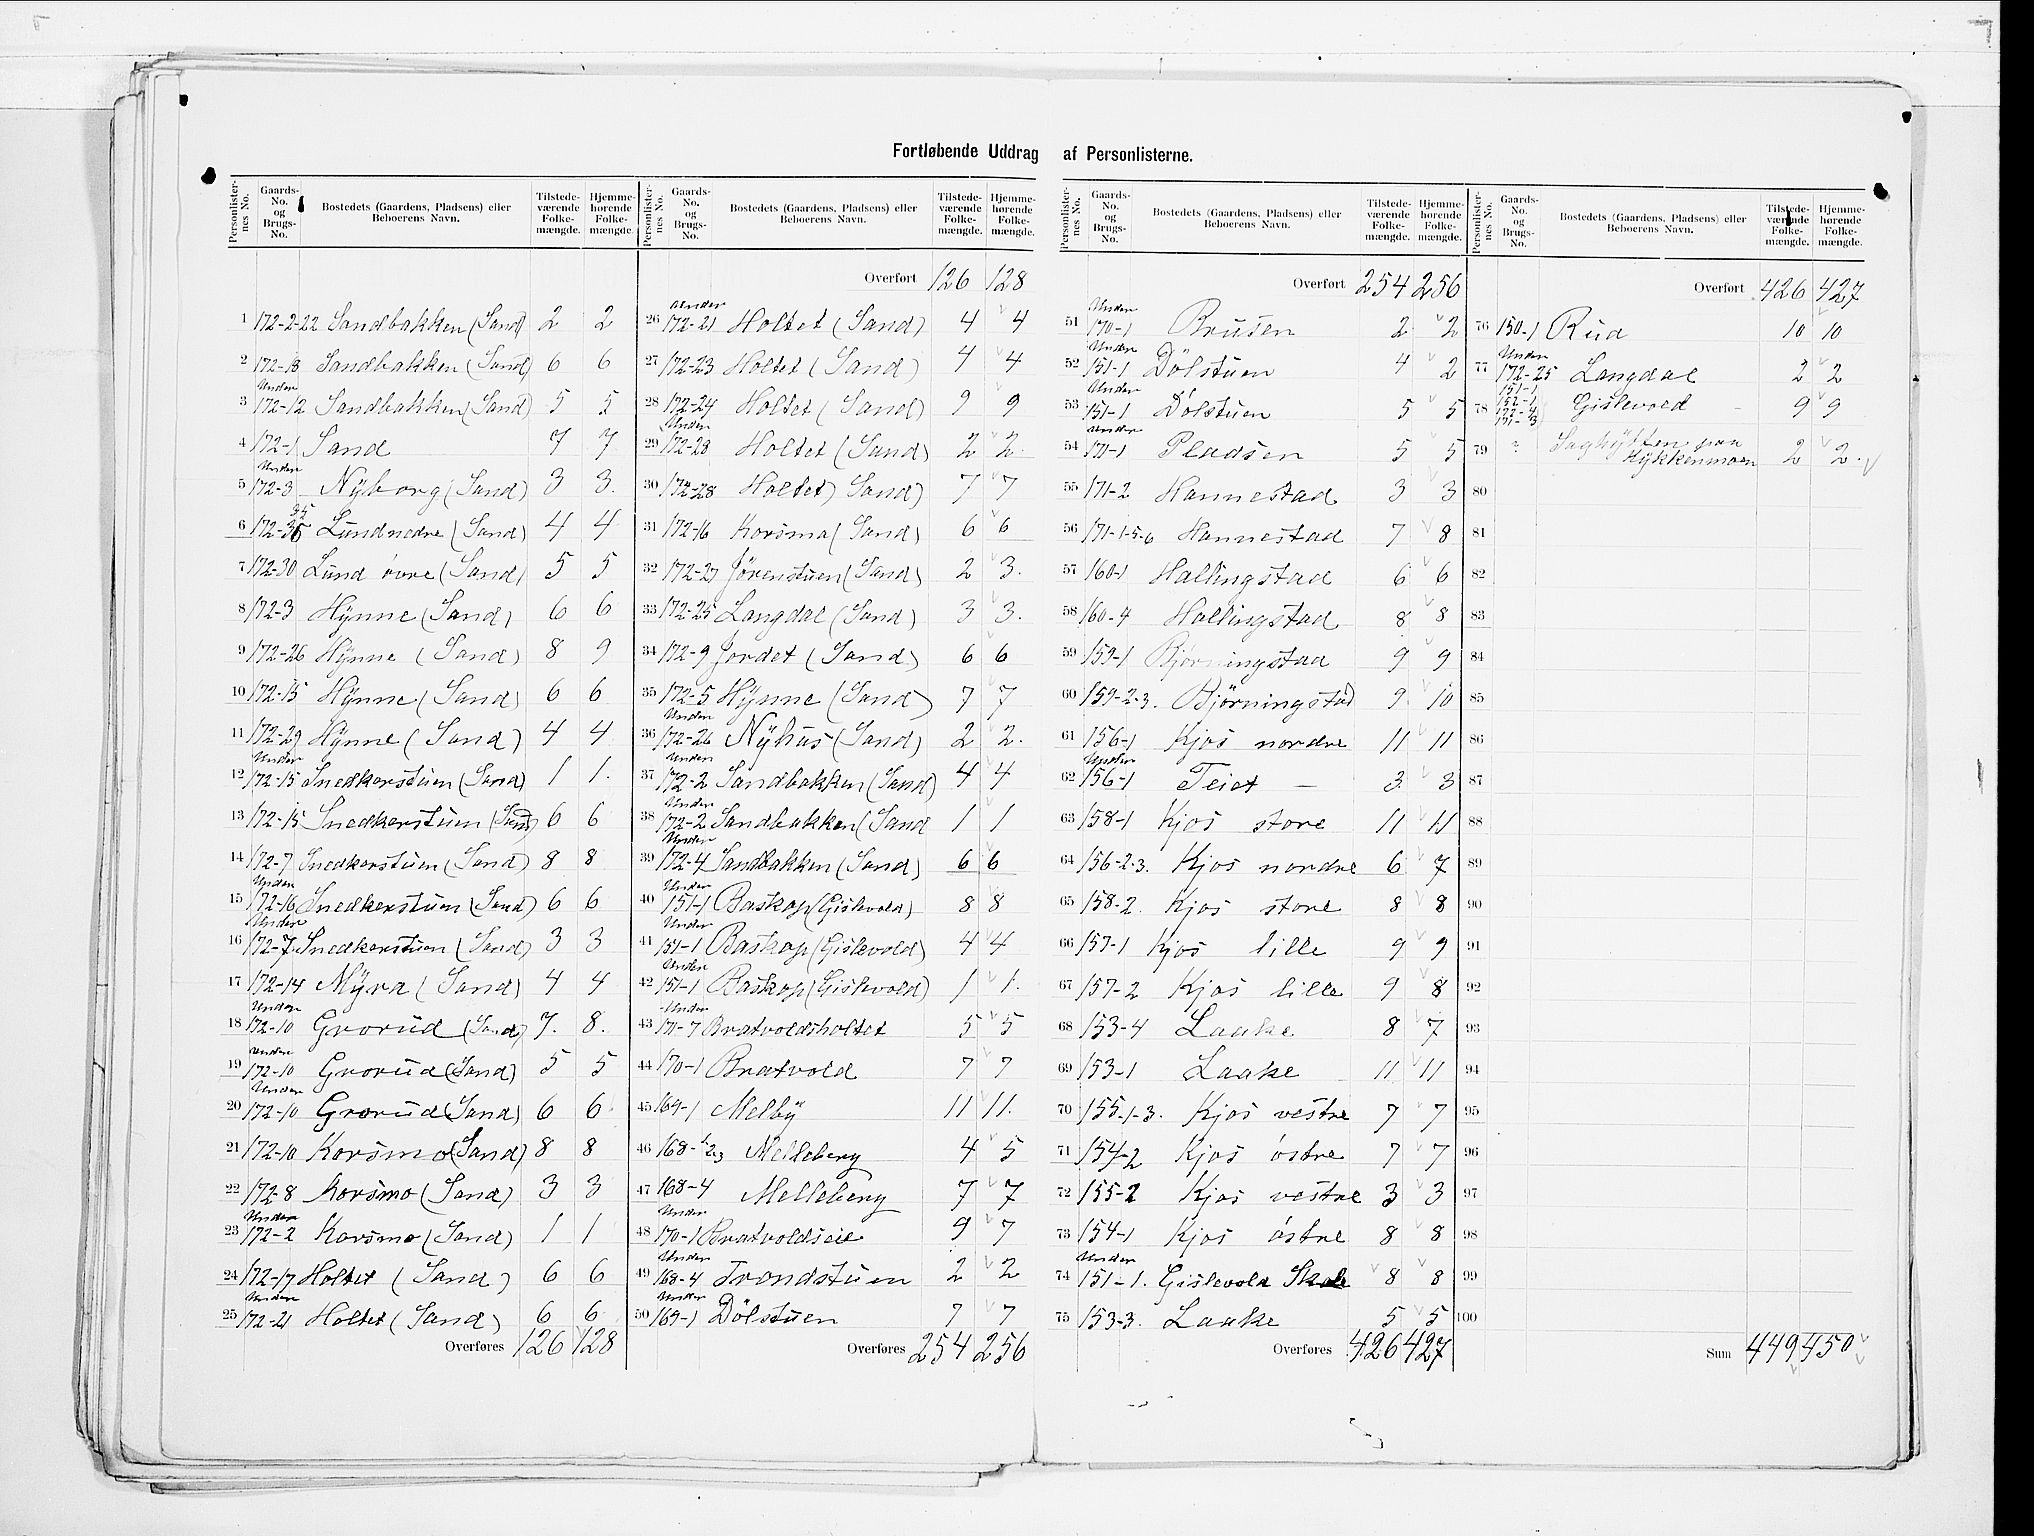 Fortløbende Uddrag af Personlisterne.
Personlister-nes No. Gaards-No. og Brugs-No. Bostedets (Gaardens, Pladsens) eller Beboerens Navn. Tilstede-værende Folke-mængde. Hjemme-hørende Folke-mængde.
1 172-2-22 Sandbakken (Sand) 2 2
2 172-18 Sandbakken (Sand) 6 6
3 Under 172-12 Sandbakken (Sand) 5 5
4 172-1 Sand 7 7
5 Under 172-3 Nÿborg (Sand) 3 3.
6 172-35 Lundnedre (Sand) 4 4
7 172-30 Lund övre (Sand) 5 5
8 172-3 Hÿnne (Sand) 6 6
9 172-26 Hÿnne (Sand) 8 9
10 172-15 Hÿnne (Sand) 6 6
11 172-29 Hÿnne (Sand) 4 4
12 Under 172-15 Snedkerstuen (Sand) 1 1.
13 172-15 Snedkerstuen (Sand) 6 6
14 172-7 Snedkerstuen (Sand) 8 8
15 Under 172-16 Snedkerstuen (Sand) 6 6
16 Under 172-7 Snedkerstuen (Sand) 3 3
17 172-14 Mÿra (Sand) 4 4
18 Under 172-10 Grorud (Sand) 7. 8.
19 Under 172-10 Grorud (Sand) 5 5
20 Under 172-10 Grorud (Sand) 6 6
21 172-10 Korsmo (Sand) 8 8
22 172-8 Korsmo (Sand) 3 3
23 Under 172-2 Korsmo (Sand) 1 1
24 172-17 Holtet (Sand) 6 6
25 Under 172-21 Holtet (Sand) 6 6
Overføres 126 128
Personlister-nes No. Gaards-No. og Brugs-No. Bostedets (Gaardens, Pladsens) eller Beboerens Navn. Tilstede-værende Folke-mængde. Hjemme-hørende Folke-mængde.
Overført 126 128
26 Under 172-21 Holtet (Sand) 4 4
27 172-23 Holtet (Sand) 4 4
28 172-24 Holtet (Sand) 9 9
29 Under 172-28 Holtet (Sand) 2 2.
30 172-28 Holtet) Sand) 7 7
31 172-16 Korsmo (Sand) 6 6
32 172-27 Jörenstuen (Sand) 2 3.
33 172-25 Langdal (Sand) 3 3.
34 172-9 Jordet (Sand) 6 6
35 172-5 Hÿnne (Sand) 7 7
36 Under 172-26 Nÿhus (Sand) 2 2.
37 Under 172-2 Sandbakken (Sand) 4 4
38 Under 172-2 Sandbakken (Sand 1 1
39 Under 172-4 Sandbakken (Sand) 6 6
40 Under 151-1 Baskop (Gislevold) 8 8
41 Under 151-1 Baskop (Gislevold) 4 4
42 Under 151-1 Baskop (Gislevold) 1 1.
43 Under 171-7 Bratvoldsholtet 5 5
44 170-1 Bratvold 7 7
45 169-1 Melbÿ 11 11.
46 168-1/2,3 Melleberg 4 5
47 168-4 Melleberg 7 7
48 Under 170-1 Bratvoldseie 9 7
49 Under 168-4 Trondstuen 2 2
50 Under 169-1 Dölstuen 7 7
Overføres 254 256
Personlister-nes No. Gaards-No. og Brugs-No. Bostedets (Gaardens, Pladsens) eller Beboerens Navn. Tilstede-værende Folke-mængde. Hjemme-hørende Folke-mængde.
Overført 254 256
51 Under 170-1 Brusen 2 2
52 Under 151-1 Dölstuen 4 2
53 Under 151-1 Dölstuen 5 5
54 Under 171-1 Pladsen 5 5
55 171-2 Hannestad 3 3
56 171-1-5-6 Hannestad 7 8
57 160-1 Hallingstad 6 6
58 160-4 Hallingstad 8 8
59 159-1 Bjørningstad 9 9
60 159-2-3. Björningstad 9. 10
61 156-1 Kjos nordre 11 11
62 Under 156-1 Teiet – 3 3
63 158-1 Kjos store 11 11
64 156-2-3. Kjos nordre 6 7
65 158-2. Kjos store 8 8
66 157-1 Kjos lille 9 9
67 157-2 Kjos lille 9 8
68 153-4 Laake 8 7
69 153-1 Laake 11 11
70 155-1-3. Kjos vestre 7 7
71 154-2 Kjos östre 7 7
72 155-2 Kjos vestre 3 3
73 154-1 Kjos östre 8 8
74 Under 151-1. Gislevold Skole 8 8
75 153-3. Laake 5 5
Overføres 426 427
Personlister-nes No. Gaards-No. og Brugs-No. Bostedets (Gaardens, Pladsens) eller Beboerens Navn. Tilstede-værende Folke-mængde. Hjemme-hørende Folke-mængde.
Overført 426 427
76 150-1 Rud 10 10
77 Under 172-25 Langdal 2 2
78 151-1 152-1 172-4 171-3 Gislevold – 9 9
79 ? Saghÿtten paa Hÿkkenmoen 2 2.
80
81
82
83
84
85
86
87
88
89
90
91
92
93
94
95
96
97
98
99
100
Sum 449 450